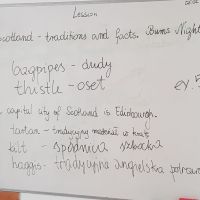 Lession
Scotland - traditions and facts. Burns Night
bagpipes - dudy
thistle - oset
ex. 5
capital city of Scotland is Edinburgh.
tartan - tradycyjny materiał w kratę
kilt - spódnica szkocka
haggis - tradycyjna angielska potrawa